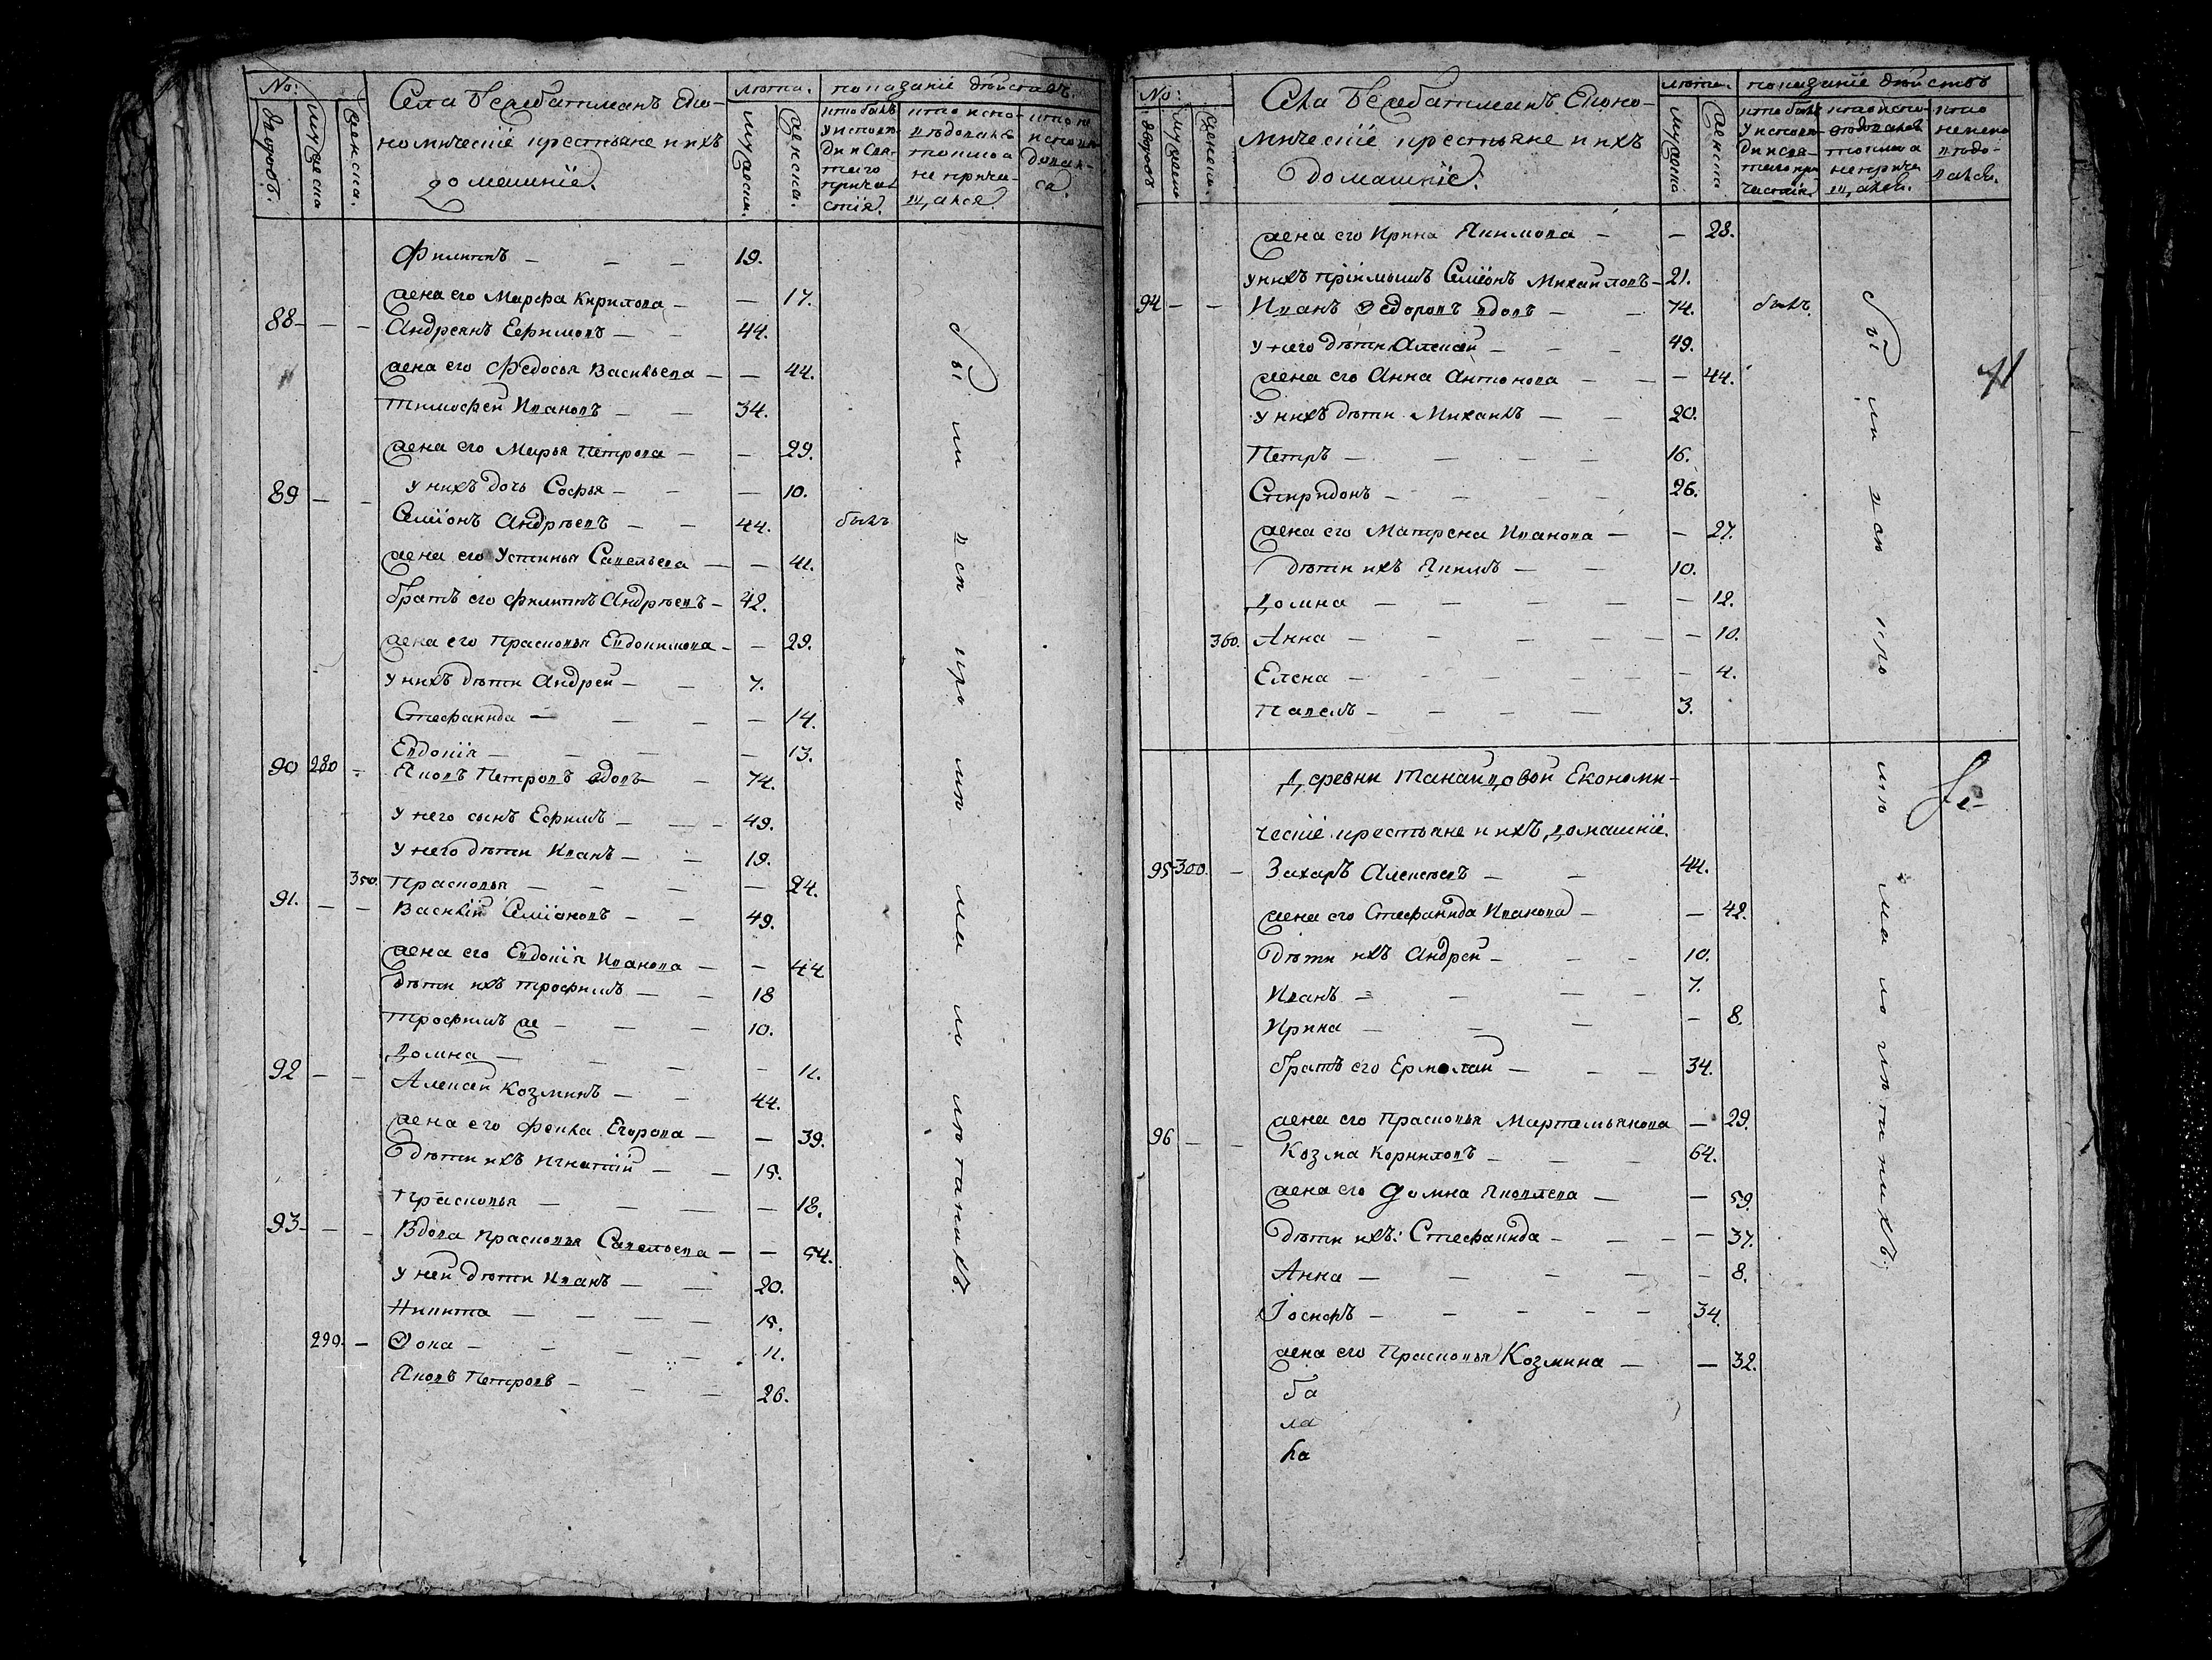 No:
Дворовъ.
мужеска
женска.
Села Белебатманъ Еко-
номическіе крестьяне и ихъ
домашніе.
лѣта.
мужеска.
женска.
показаніе дѣйствъ.
кто былъ у исповѣди и свя-таго причас-тія.
кто испо-вѣдовался токмо а не прича-щался.
кто не исповѣ-довал-ся.
Филиппъ — — — 19.
жена его Марфа Кирилова — — 17.
88 — — Андреянъ Ефимовъ — — 44.
жена его Федосья Васильева — — 44.
Тимофей Ивановъ — — 34.
жена его Марья Петрова — — 29.
89 — — у нихъ дочь Софья — — — 10.
Семіонъ Андрѣевъ — — 44. былъ
жена его Устинья Савельева — — 41.
братъ его Филиппъ Андрѣевъ — 42.
жена его Прасковья Евдокимова — — 29.
у нихъ дѣти Андрей — — 7.
Стефанида — — — — 14.
Евдокія — — — 13.
90 280 — Яковъ Петровъ вдовъ — — 74.
у него сынъ Ефимъ — — — 49.
у него дѣти Иванъ — — 19.
350. Прасковья — — — — 24.
91. — — Василій Семіоновъ — — 49.
жена его Евдокія Иванова — — 44
дѣти ихъ Трофимъ — — 18
Трофимъ же — — — 10.
Домна — — — — 11.
92 — — Алексѣй Козминъ — — 44.
жена его Фекла Егорова — — 39.
дѣти ихъ Игнатій — — 15.
Прасковья — — — — 18.
93 — — Вдова Прасковья Савельева — — 54.
у ней дѣти Иванъ — — 20.
Никита — — — — 15.
290. — Фока — — — — 11.
Яковъ Петровъ — — — 26.
Были вси кромѣ малолѣтанихъ.
No:
дворовъ
мужеска
женска.
Села Белебатманъ Еконо-
мическіе крестьяне и ихъ
домашніе.
лѣта.
мужеска
женска
показаніе дѣйствъ
кто былъ у исповѣ-ди и свя-таго при-частія.
кто испо-вѣдовался токмо а не прича-щался.
кто не испо-вѣдо-вался.
жена его Ирина Якимова — — 28.
у нихъ пріимышъ Семіонъ Михайловъ — 21.
94 — — Иванъ Федоровъ вдовъ — — 74. былъ.
у него дѣти Алексѣй — — — 49.
жена его Анна Антонова — — — 44.
у нихъ дѣти Михаилъ — — 20.
Петръ — — — — 16.
Спиридонъ — — — — 26.
жена его Матрена Иванова — — 27.
дѣти ихъ Якимъ — — 10.
Домна — — — — — 12.
360. Анна — — — — — 10.
Елена — — — — — 4.
Павелъ — — — — 3.
Деревни Танайцовой Економи-
ческіе крестьяне и ихъ домашніе.
95 300. — Захаръ Алексѣевъ — — 44.
жена его Стефанида Иванова — — 42.
дѣти ихъ Андрей — — — 10.
Иванъ — — — — 7.
Ирина — — — — 8.
братъ его Ермолай — — — 34.
жена его Прасковья Мартемьянова — 29.
96 — — Козма Корниловъ — — — 64.
жена его Домна Яковлева — — 59.
дѣти ихъ: Стефанида — — — — 37.
Анна — — — — — 8.
Іосифъ — — — — — 34.
жена его Прасковья Козмина — — 32.
Были вси кромѣ малолѣтнихъ.
ба
ла
ha